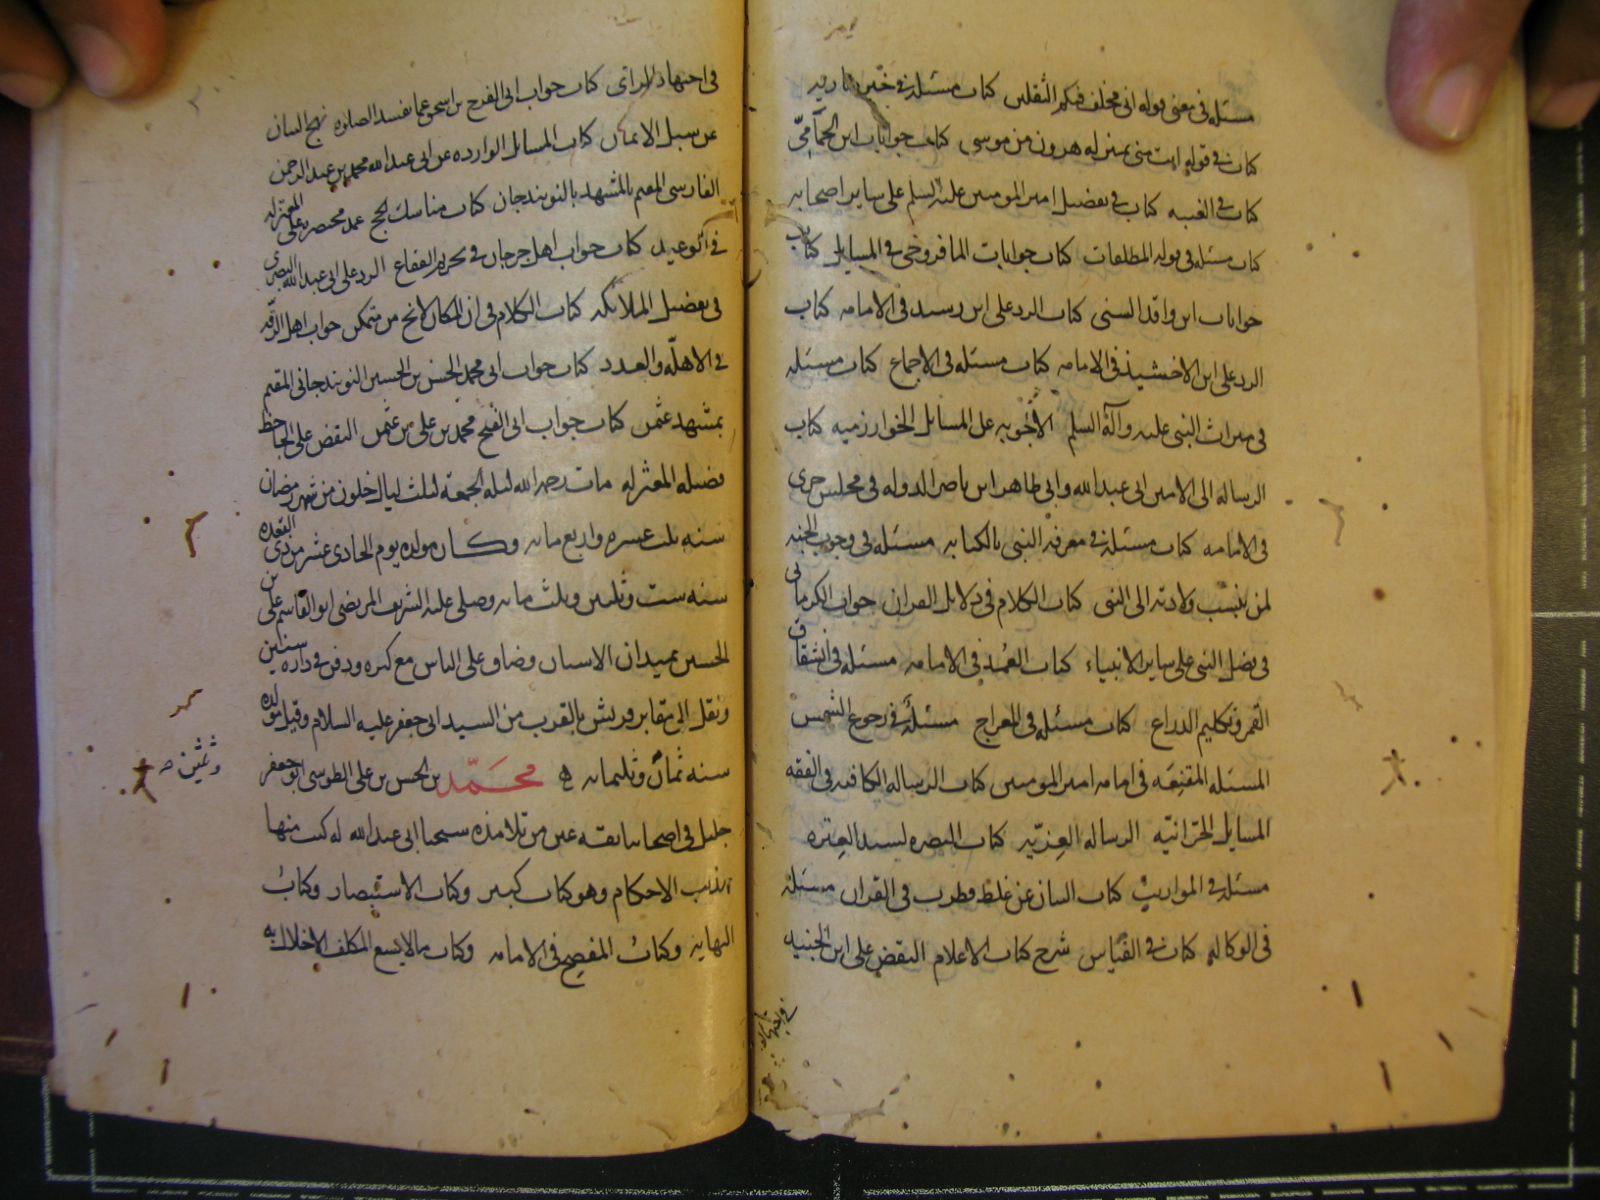 مسئله فى معنى قوله انى مخلف فيكم الثقلين كتاب مسئلة فى خبر مارية
كتاب فى قوله انت منى بمنزله هرون من موسى كتاب جوابات ابن الحمامىّ
كتاب فى الغيبه كتاب فى تفضيل امير المومنين عليه السلم على ساير اصحابه
كتاب مسئله فى قوله المطلقات كتاب جوابات المافروخى فى المسايل كتاب
جوابات ابن واقد السنى كتاب الرد على ابن رسيد فى الامامه كتاب
الرد على ابن الاخشيد فى الامامه كتاب مسئله فى الاجماع كتاب مسئله
فى ميراث النبى عليه وآله السلم الاجوبه عن المسايل الخوارزميه كتاب
الرساله الى الامير ابى عبدالله وابى طاهر ابن ناصر الدوله فى مجلس جرى
فى الامامه كتاب مسئلة فى معرفه النبى بالكتابه مسئله فى وجوب الجنه
لمن ينسب ولادته الى النبى كتاب الكلام فى دلايل القران جواب الكرمانى
فى فضل النبى على ساير الانبياء كتاب العُمَد فى الامامه مسئله فى انشقاق
القمر وتكليم الذراع كتاب مسئله فى المعراج مسئلة فى رجوع الشمس
المسئله المقنِعَه فى امامه امير المومنين كتاب الرساله الكافيه فى الفقه
المسايل الحرّانيّه الرساله العِزّيه كتاب البصره لسيد العِتره
مسئلة فى المواريث كتاب البيان عن غلط قطرب فى القران مسئلة
فى الوكاله كتاب فى القياس شرح كتاب الاعلام النقض على ابن الجنيد
فى اجتهاد الراى كتاب جواب ابى الفرح بن اسحق عما يفسد الصلوه نهج البيان
عن سبل الايمان كتاب المسايل الوارده عن ابى عبدالله محمد بن عبد الرحمن
الفارسى المقيم بالمشهد بالنوبندجان كتاب مناسك الحج عمد مختصره على المعتزله
فى الوعيد كتاب جواب اهل جرجان فى تحريم الفقاع الرد على ابى عبدالله البصرى
فى تفضيل الملائكه كتاب الكلام فى ان المكان لا يخ من متمكن جواب اهل الرقه
فى الاهلّه والعدد كتاب جواب ابى محمد الحسن بن الحسين النوبندجانى المقيم
بمشهد عثمن كتاب جواب ابى الفتح محمد بن على بن عثمن النقض على الجاحظ
فضيله المعتزله مات رحمه الله ليله الجمعة لثلث ليال خلون من شهر رمضان
سنه ثلث عسره واربع مايه وكان مولده يوم الحادى عشر من ذى القعده
سنه ست وثلثين وثلث مايه وصلى عليه الشريف المرتضى ابو القاسم على بن
الحسين بميدان الاسنان وضاق على الناس مع كبره ودفن فى داره سنين
ونقل الى مقابر قريش بالقرب من السيد ابى جعفر عليه السلام وقيل مولده
سنه ثمان وثلثمايه ه محمّد بن الحسن بن على الطوسى ابو جعفر
وثلثين صح
جليل فى اصحابنا ثقه عين من تلامذه شيخنا ابى عبدالله له كتب منها
تهذيب الاحكام وهو كتاب كبير وكتاب الاستبصار وكتاب
النهايه وكتاب المفصح فى الامامه وكتاب مالا يسع المكلف الاخلال به
فى اجتهاد